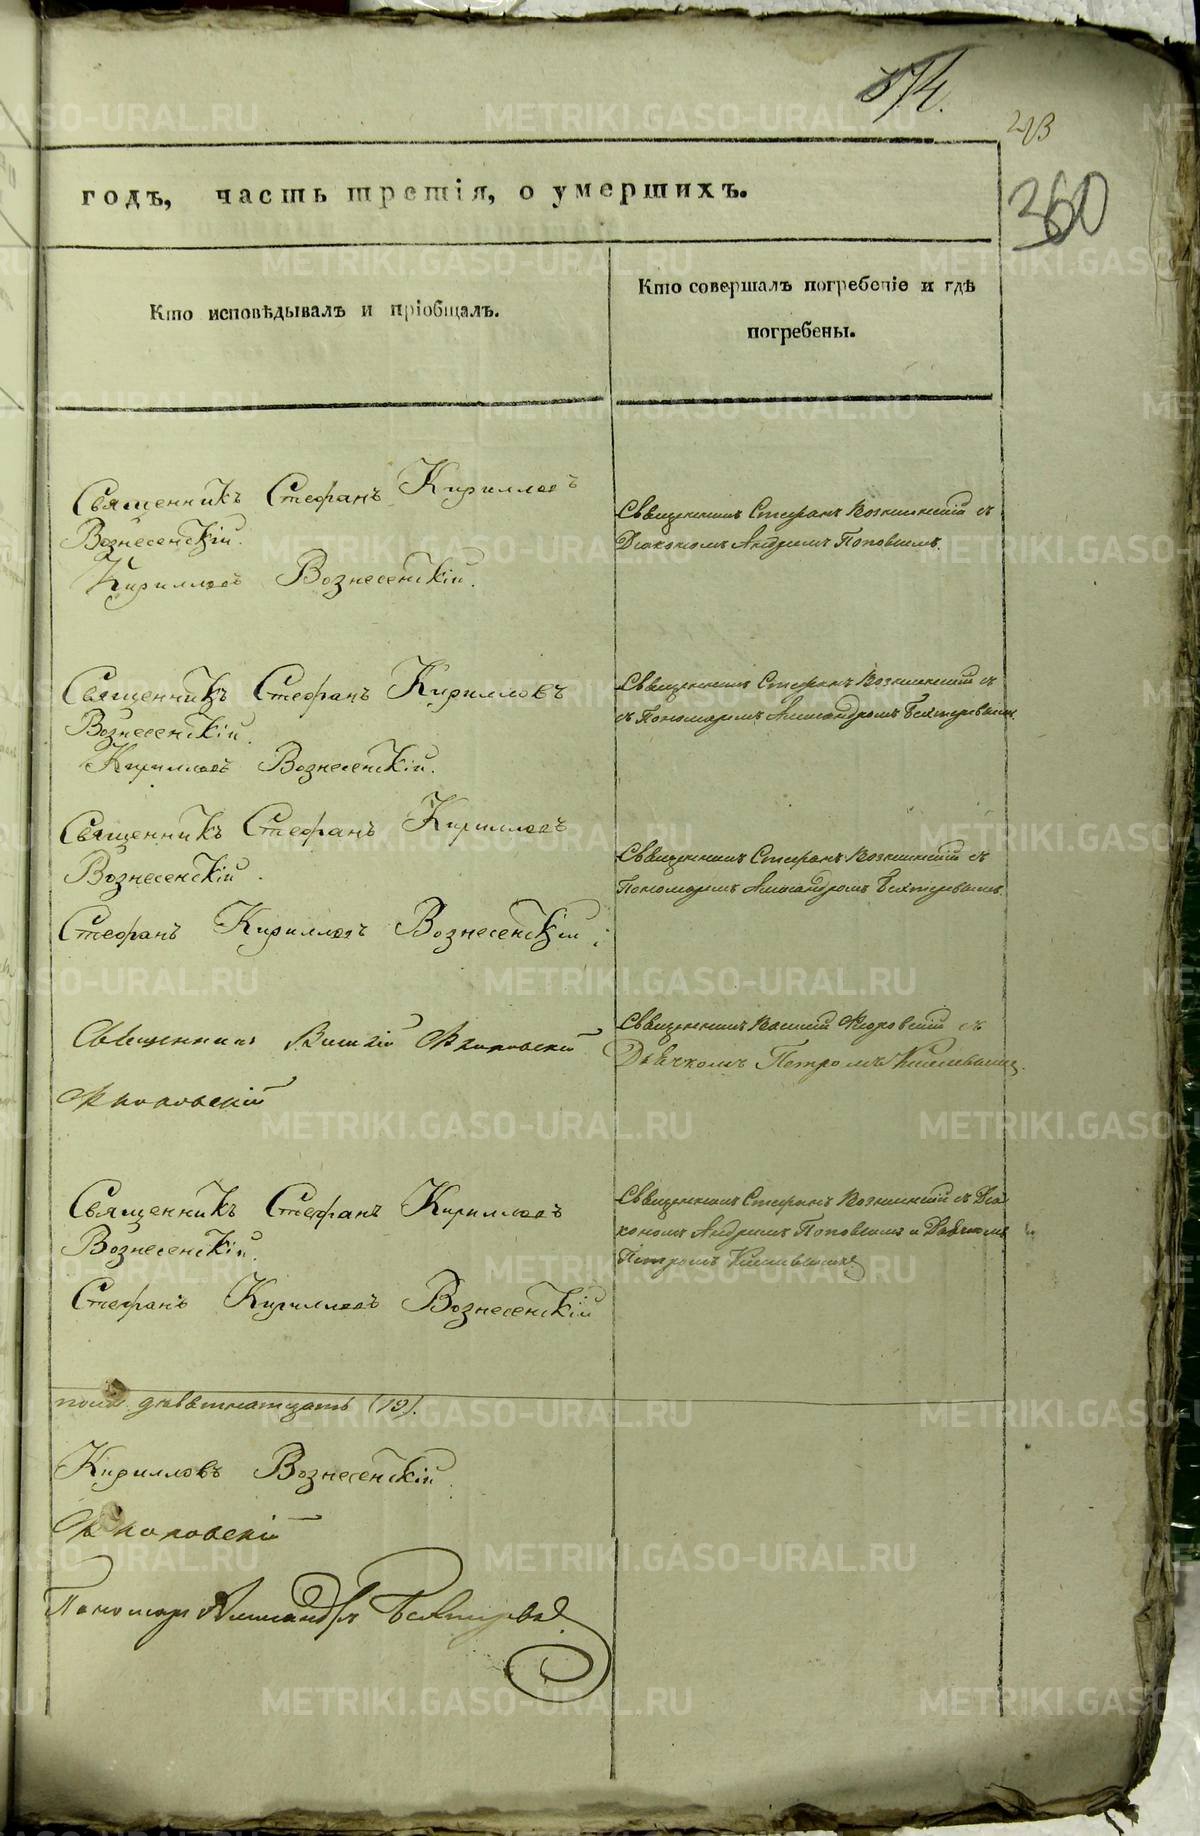 574.
213
360
годъ, часть третія, о умершихъ.
Кто исповѣдывалъ и пріобщалъ.
Кто совершалъ погребеніе и гдѣ
погребены.
Священникъ Стефанъ Кирилловъ
Вознесенскій.
Кирилловъ Вознесенскій.
Священникъ Стефанъ Вознесенскій съ
Діакономъ Андреемъ Поповымъ.
Священникъ Стефанъ Кирилловъ
Вознесенскій.
Кирилловъ Вознесенскій.
Священникъ Стефанъ Вознесенскій съ
съ Пономаремъ Александромъ Бехтеревымъ.
Священникъ Стефанъ Кирилловъ
Вознесенскій.
Стефанъ Кирилловъ Вознесенскій
Священникъ Стефанъ Вознесенскій съ
Пономаремъ Александромъ Бехтеревымъ.
Священникъ Василій
Священникъ Василій съ
Дьячкомъ Петромъ Киселевымъ.
Священникъ Стефанъ Кирилловъ
Вознесенскій.
Стефанъ Кирилловъ Вознесенскій
Священникъ Стефанъ Вознесенскій съ Діа-
кономъ Андреемъ Поповымъ и Дьячкомъ
Петромъ Киселевымъ
пола девятнатцать (19).
Кирилловъ Вознесенскій.
Пономарь Александръ Бехтеревъ
METRIKI.GASO-URAL.RU